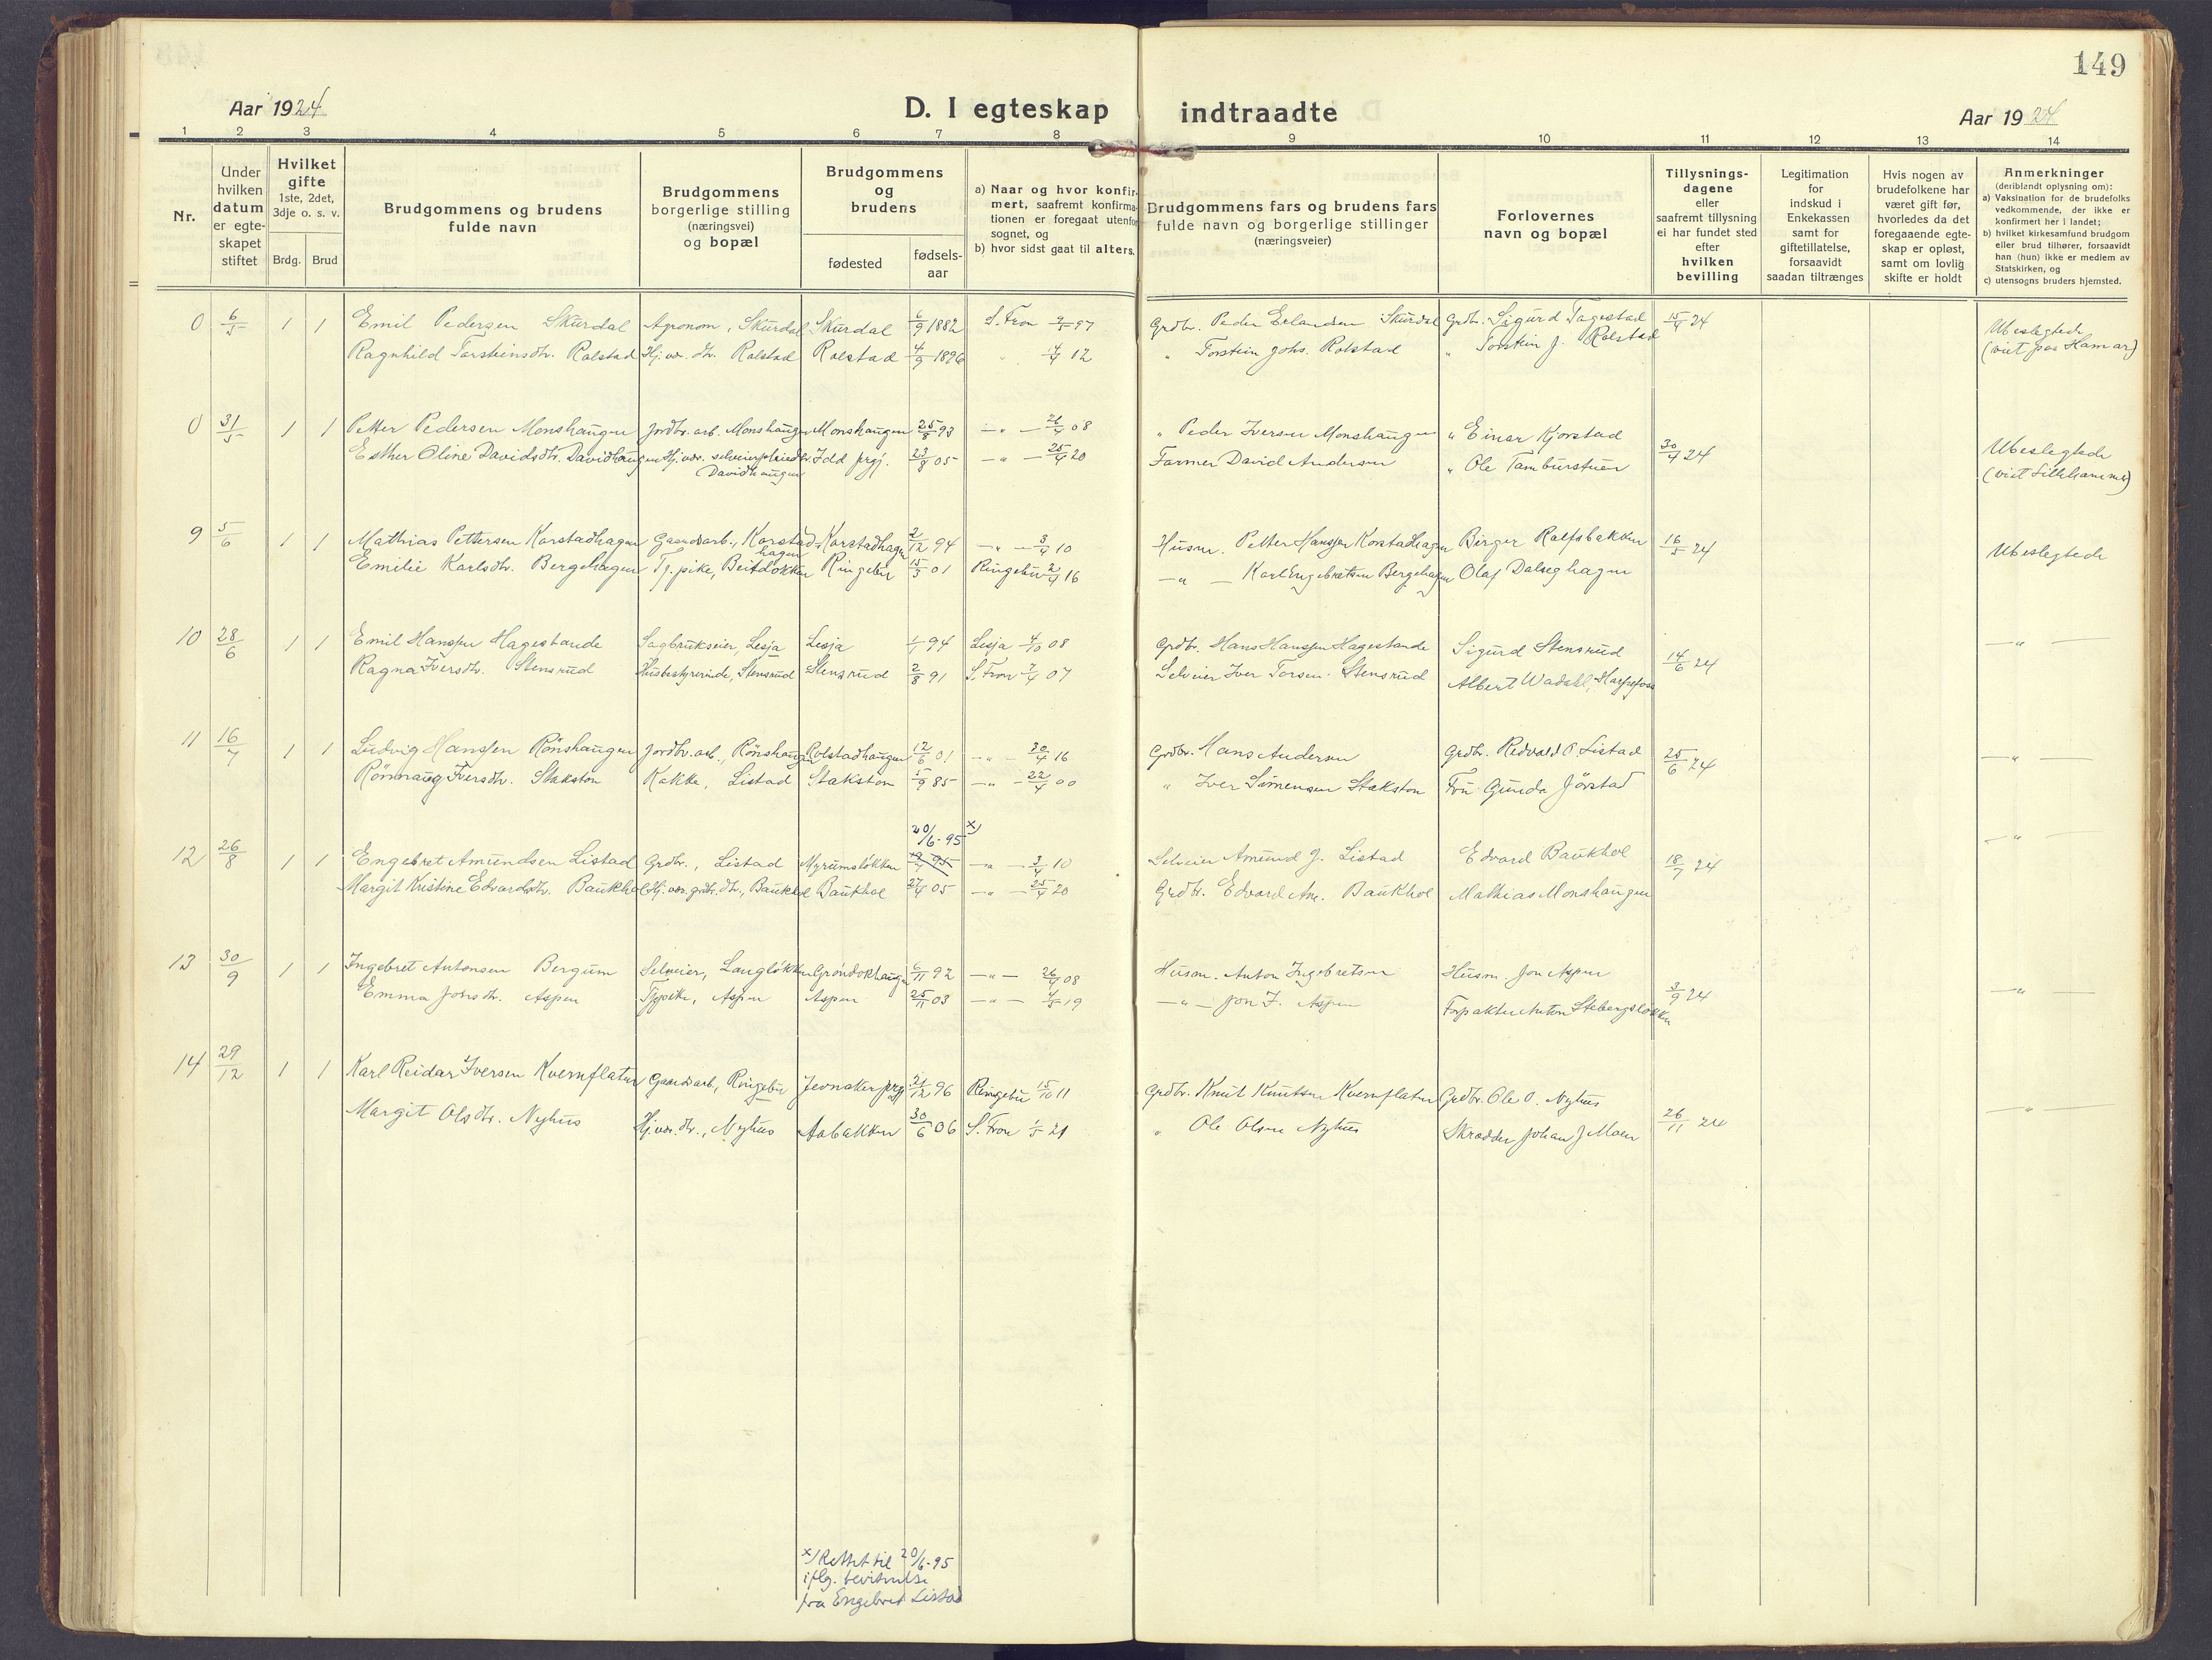 149
Aar 1924
D. I egteskap indtraadte
Aar 1924
1 2 3 4 5 6 7 8 9 10 11 12 13 14
Nr.
Under hvilken datum er egte-skapet stiftet
Hvilket gifte 1ste, 2det, 3dje o. s. v.
Brdg. Brud
Brudgommens og brudens fulde navn
Brudgommens borgerlige stilling (næringsvei) og bopæl
Brudgommens og brudens
fødested
fødsels-aar
a) Naar og hvor konfir-mert, saafremt konfirma-tionen er foregaat utenfor sognet, og
b) hvor sidst gaat til alters.
Brudgommens fars og brudens fars fulde navn og borgerlige stillinger (næringsveier)
Forlovernes navn og bopæl
Tillysnings-dagene eller saafremt tillysning ei har fundet sted efter hvilken bevilling
Legitimation for indskud i Enkekassen samt for giftetillatelse, forsaavidt saadan tiltrænges
Hvis nogen av brudefolkene har været gift før, hvorledes da det foregaaende egte-skap er opløst, samt om lovlig skifte er holdt
Anmerkninger (deriblandt oplysning om):
a) Vaksination for de brudefolks vedkommende, der ikke er konfirmert her i landet;
b) hvilket kirkesamfund brudgom eller brud tilhører, forsaavidt han (hun) ikke er medlem av Statskirken, og
c) utensogns bruders hjemsted.
0 6/5 1 1 Emil Pedersen Skurdal Agronom, Skurdal Skurdal 6/9 1882 S. Fron 9/5 97 Grdbr. Peder Erlandsen Skurdal Grdbr. Sigurd Tagestad 15/4 24 Ubeslegtede
Ragnhild Torsteinsdtr. Rolstad Hj.vær. dtr. Rolstad Rolstad 4/9 1896 " 14/4 12 " Torstein Johs. Rolstad " Torstein J. Rolstad (viet paa Hamar)
0 31/5 1 1 Petter Pedersen Monshaugen Jordbr. arb. Monshaugen Monshaugen 25/8 93 — " — 26/4 08 " Peder Iversen Monshaugen " Einar Kjorstad 30/4 24 Ubeslegtede
Esther Oline Davidsdtr. Davidhaugen Hj.vær. Davidhaugen Idd prgj. 23/8 05 — " — 25/4 20 Farmer David Andersen " Ole Tamburstuen (viet Lillehammer)
9 5/6 1 1 Mathias Pettersen Korstadhagen Gaardsarb., Korstad-hagen Korstadhagen 2/12 94 — " — 3/4 10 Husm. Petter Hanssen Korstadhagen Birger Rolfsbakken 16/5 24 Ubeslegtede
Emilie Karlsdtr. Bergehagen Tj.pike, Beitdokken Ringebu 15/3 01 Ringebu 2/4 16 — " — Karl Engebretsen Bergehagen Olaf Dalseghagen
10 28/6 1 1 Emil Hanssen Hagestande Sagbrukseier, Lesja Lesja 1/1 94 Lesja 4/10 08 Grdbr. Hans Hanssen Hagestande Sigurd Stensrud 14/6 24 — " —
Ragna Iversdtr. Stensrud Husbestyrerinde, Stensrud Stensrud 2/8 91 S. Fron 7/4 07 Selveier Iver Torsen Stensrud Albert Wadahl, Harpefoss
11 16/7 1 1 Ludvig Hanssen Rönshaugen Jordbr. arb., Rönshaugen Rolstadhaugen 12/6 01 — " — 30/4 16 Grdbr. Hans Andersen Grdbr. Redvald O. Listad 25/6 24 — " —
Rönnaug Iversdtr. Stakston Kokke, Listad Stakston 15/9 85 — " — 22/4 00 " Iver Simensen Stakston Fru Gunda Jörstad
20/6-95 x)
12 26/8 1 1 Engebret Amundsen Listad Grdbr., Listad Myrumslökken — " — 3/4 10 Selveier Amund J. Listad Edvard Baukhol 18/7 24 — " —
Margit Kristine Edvardsdtr. Baukhol Hj.vær. grdbr. dtr., Baukhol Baukhol 27/4 05 — " — 25/4 20 Grdbr. Edvard Baukhol Mathias Monshaugen
13 30/9 1 1 Ingebret Antonsen Bergum Selveier, Langlökken Gröndokhaugen 6/11 92 — " — 26/4 08 Husm. Anton Ingebretsen Husm. Jon Aspen 3/9 24 — " —
Emma Jonsdtr. Aspen Tjpike, Aspen Aspen 25/11 03 — " — 4/5 19 — " — Jon I. Aspen Forpakter Anton Stebergslökken
14 29/12 1 1 Karl Reidar Iversen Kvernflaten Gaardsarb, Ringebu Jevnaker prgj 21/12 96 Ringebu 15/10 11 Grdbr. Knut Knutsen Kvernflaten Grdbr. Ole O. Nyhus 26/11 24 — " —
Margit Olsdtr. Nyhus Hj.vær. dtr., Nyhus Aabakken 30/6 06 S. Fron 1/5 21 " Ole Olsen Nyhus Skrædder Johan J Moen
x) Rettet til 20/6-95
iflg. bevitnelse
fra Engebret Listad